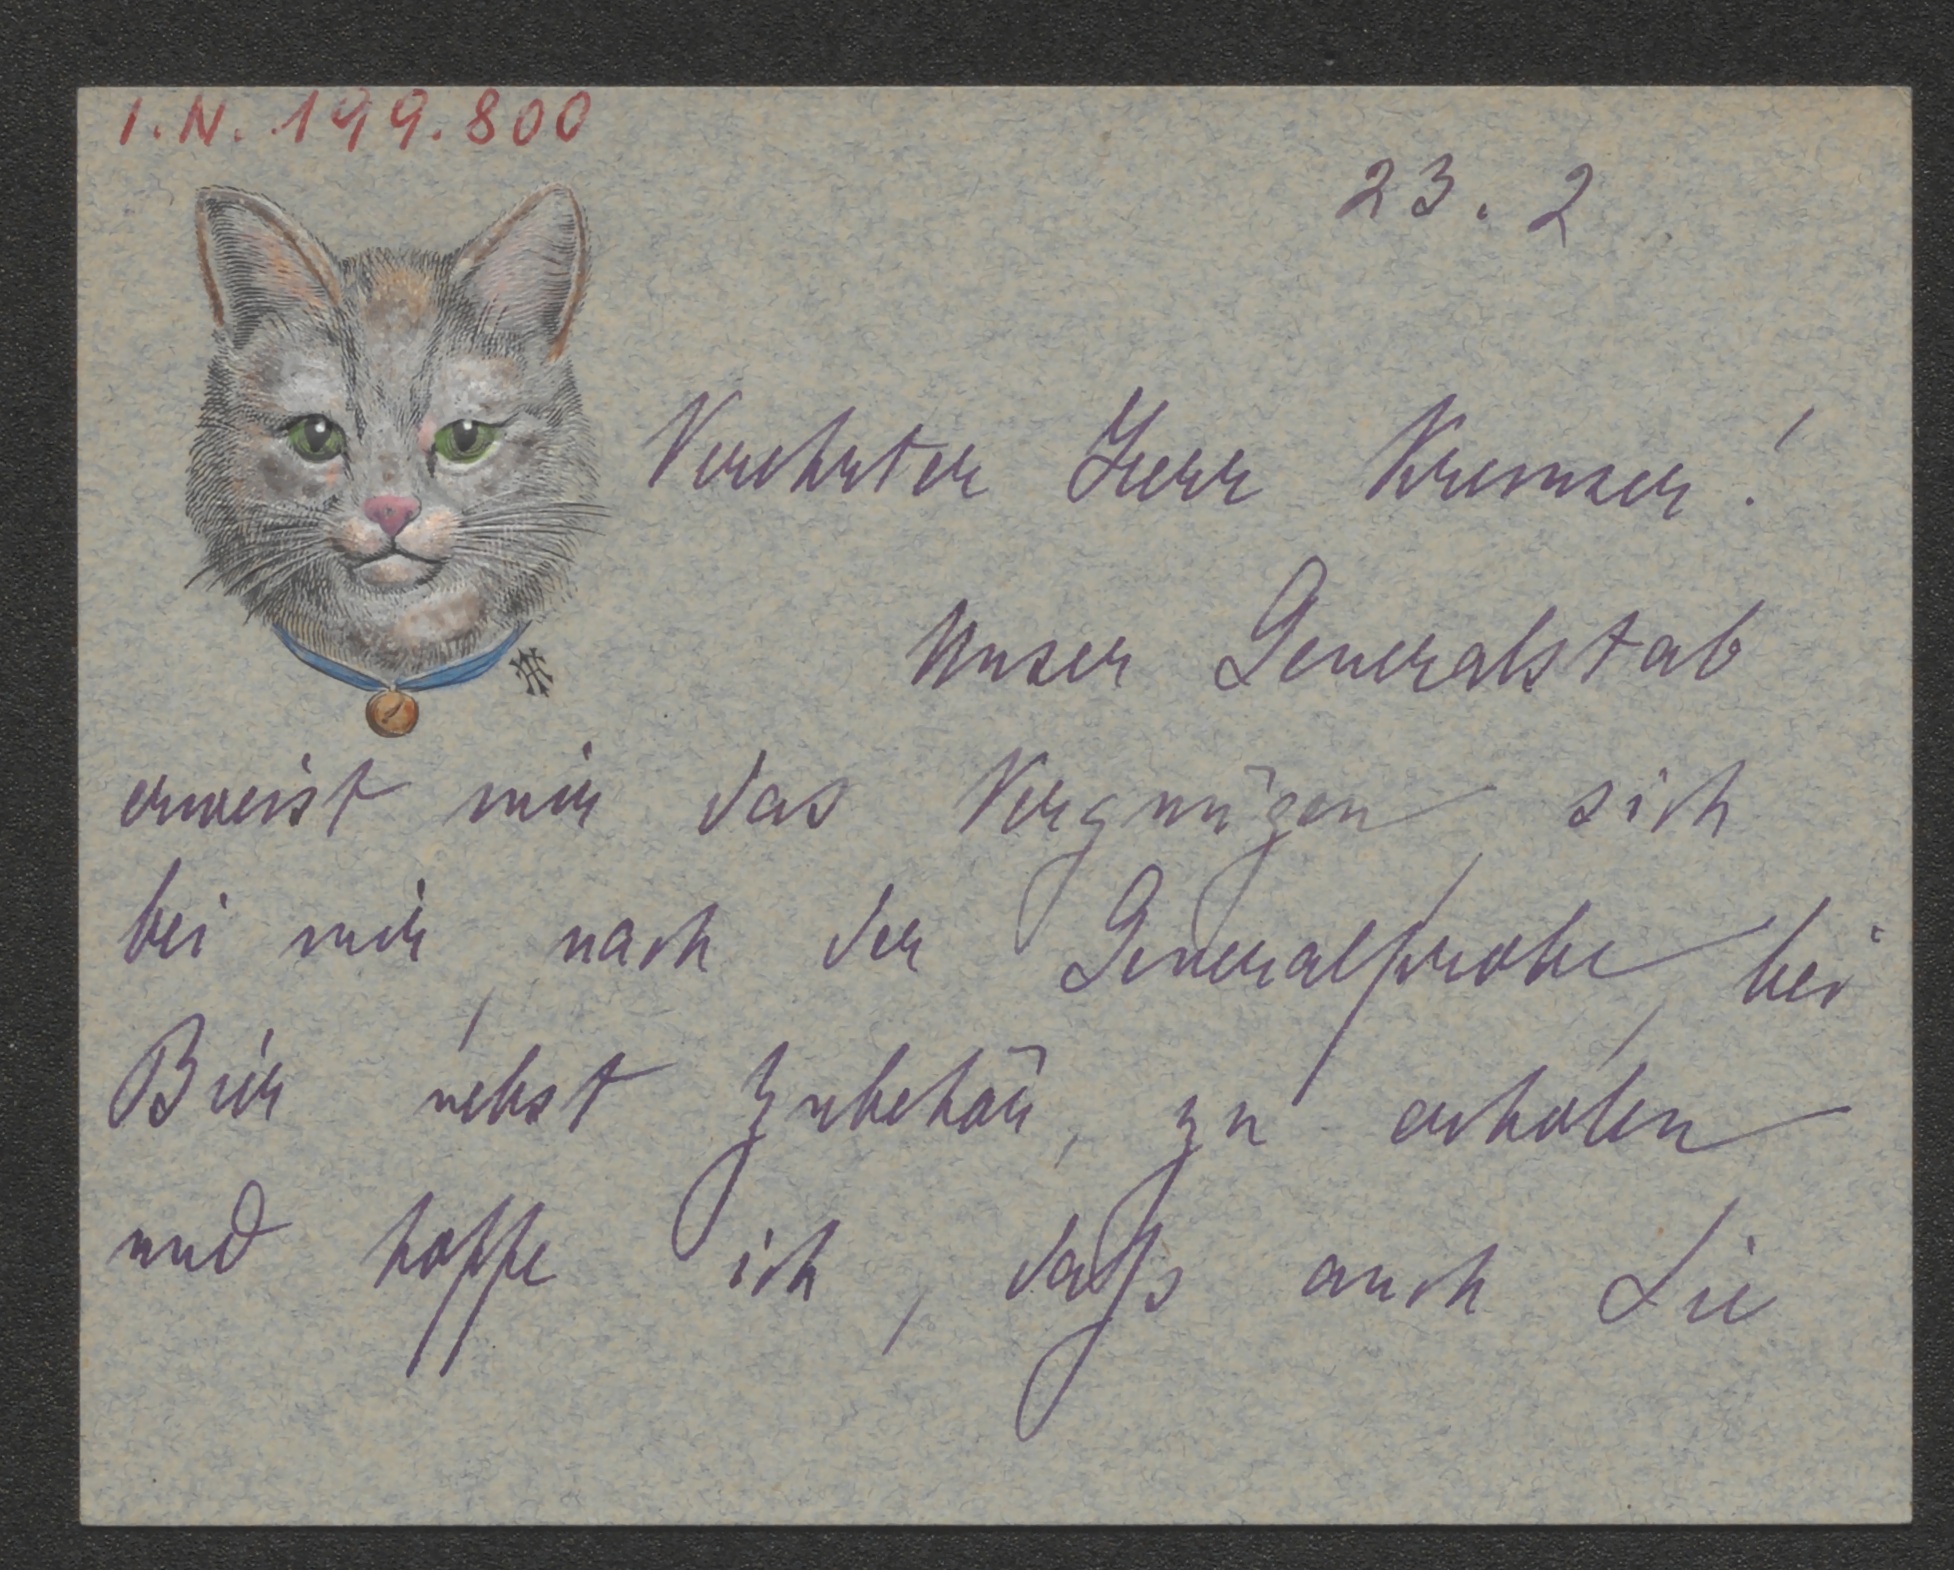 I.N. 199.800
23. 2
Verehrter Herr Kremser!
Unser Generalstab
erweist mir das Vergnügen sich
bei mir nach der Generalprobe bei
Bier nebst Zubehör, zu erholen
und hoffe ich, dass auch Sie